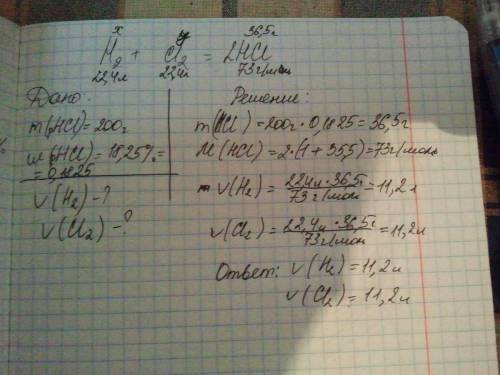 x y 36,5г
H2 + Cl2 = 2HCl
22,4л 22,4л 73 г/моль
Дано:
m(HCl) = 200г
ω(HCl) = 18,25% =
= 0,1825
V(H2) - ?
V(Cl2) - ?
Решение:
m(HCl) = 200г · 0,1825 = 36,5г
M(HCl) = 2·(1+35,5) = 73г/моль
V(H2) = 22,4л · 36,5г / 73 г/моль = 11,2л
V(Cl2) = 22,4л · 36,5г / 73г/моль = 11,2л
Ответ: V(H2) = 11,2л
V(Cl2) = 11,2л